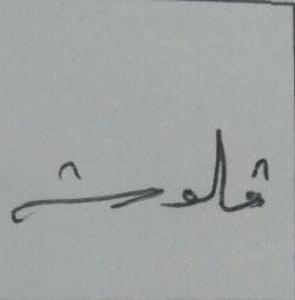 قلوش